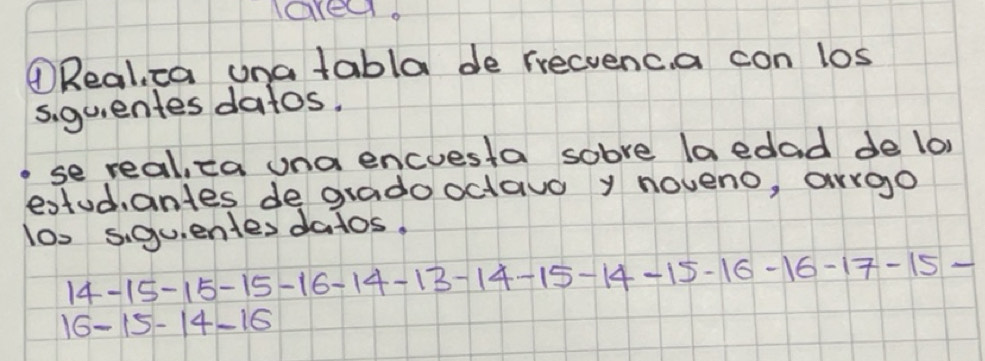 Tarea.
①Realiza una tabla de frecuencia con los
siguientes datos.
• se realiza una encuesta sobre la edad de los
estudiantes de grado octavo y noveno, arrgo
los siguientes datos.
14-15-15-15-16-14-13-14-15-14-15-16-16-17-15-
16-15-14-16